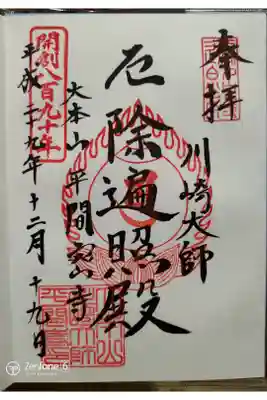 奉拝
川崎大師
厄除遍照殿
大本山平間寺
開創八百九十年
平成二十九年十二月十九日
Zenfone 6